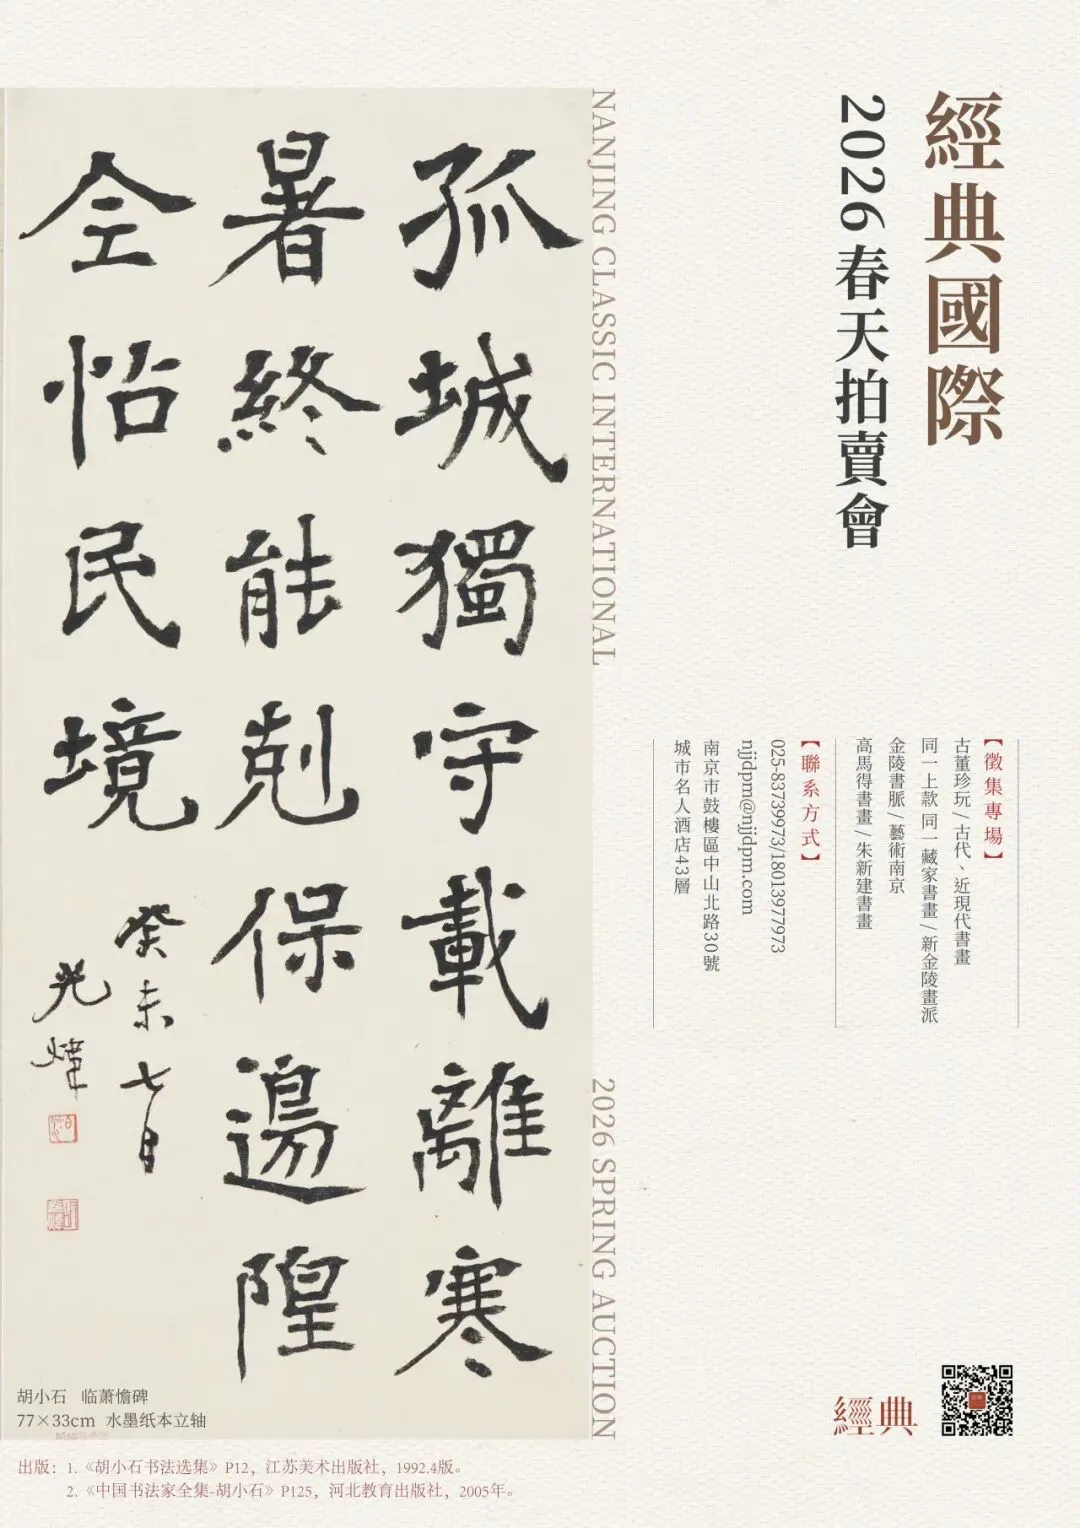 經典國際
2026春天拍賣會
NANJING CLASSIC INTERNATIONAL
2026 SPRING AUCTION
孤城獨守載離寒
暑終能剋保邊隍
全怡民境
癸未七月
光煒
【徵集專場】
古董珍玩/古代、近現代書畫
同一上款 同一藏家書畫/新金陵畫派
金陵書脈/藝術南京
高馬得書畫/朱新建書畫
【聯系方式】
025-83739973/18013977973
njjdpm@njjdpm.com
南京市鼓樓區中山北路30號
城市名人酒店43層
胡小石 临萧憺碑
77×33cm 水墨纸本立轴
經典
出版：1.《胡小石书法选集》P12，江苏美术出版社，1992.4版。
2.《中国书法家全集-胡小石》P125，河北教育出版社，2005年。